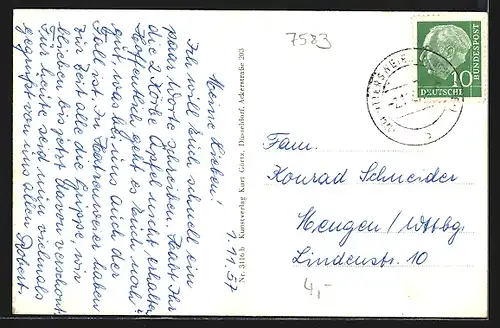 Meine Lieben!
Ich will Euch schnell ein
paar Worte schreiben. Habt Ihr
die 2 Körbe Äpfel noch erhalten
Hoffentlich geht es Euch noch
gut, was bei uns auch der
Fall ist. In Hattenweier haben
zur Zeit alle die Grippe, wir
blieben bis jetzt davon verschont
Für heute seid nun vielmals
gegrüsst von allen Robert.
1.11.57
Nr. 3116 b Kunstverlag Kurt Gertz, Düsseldorf, Ackerstraße 203
7583
DEUTSCHE
BUNDESPOST
10
Fam.
Konrad Schneider
Hengen / Wttbg.
Lindenstr. 10
4,-